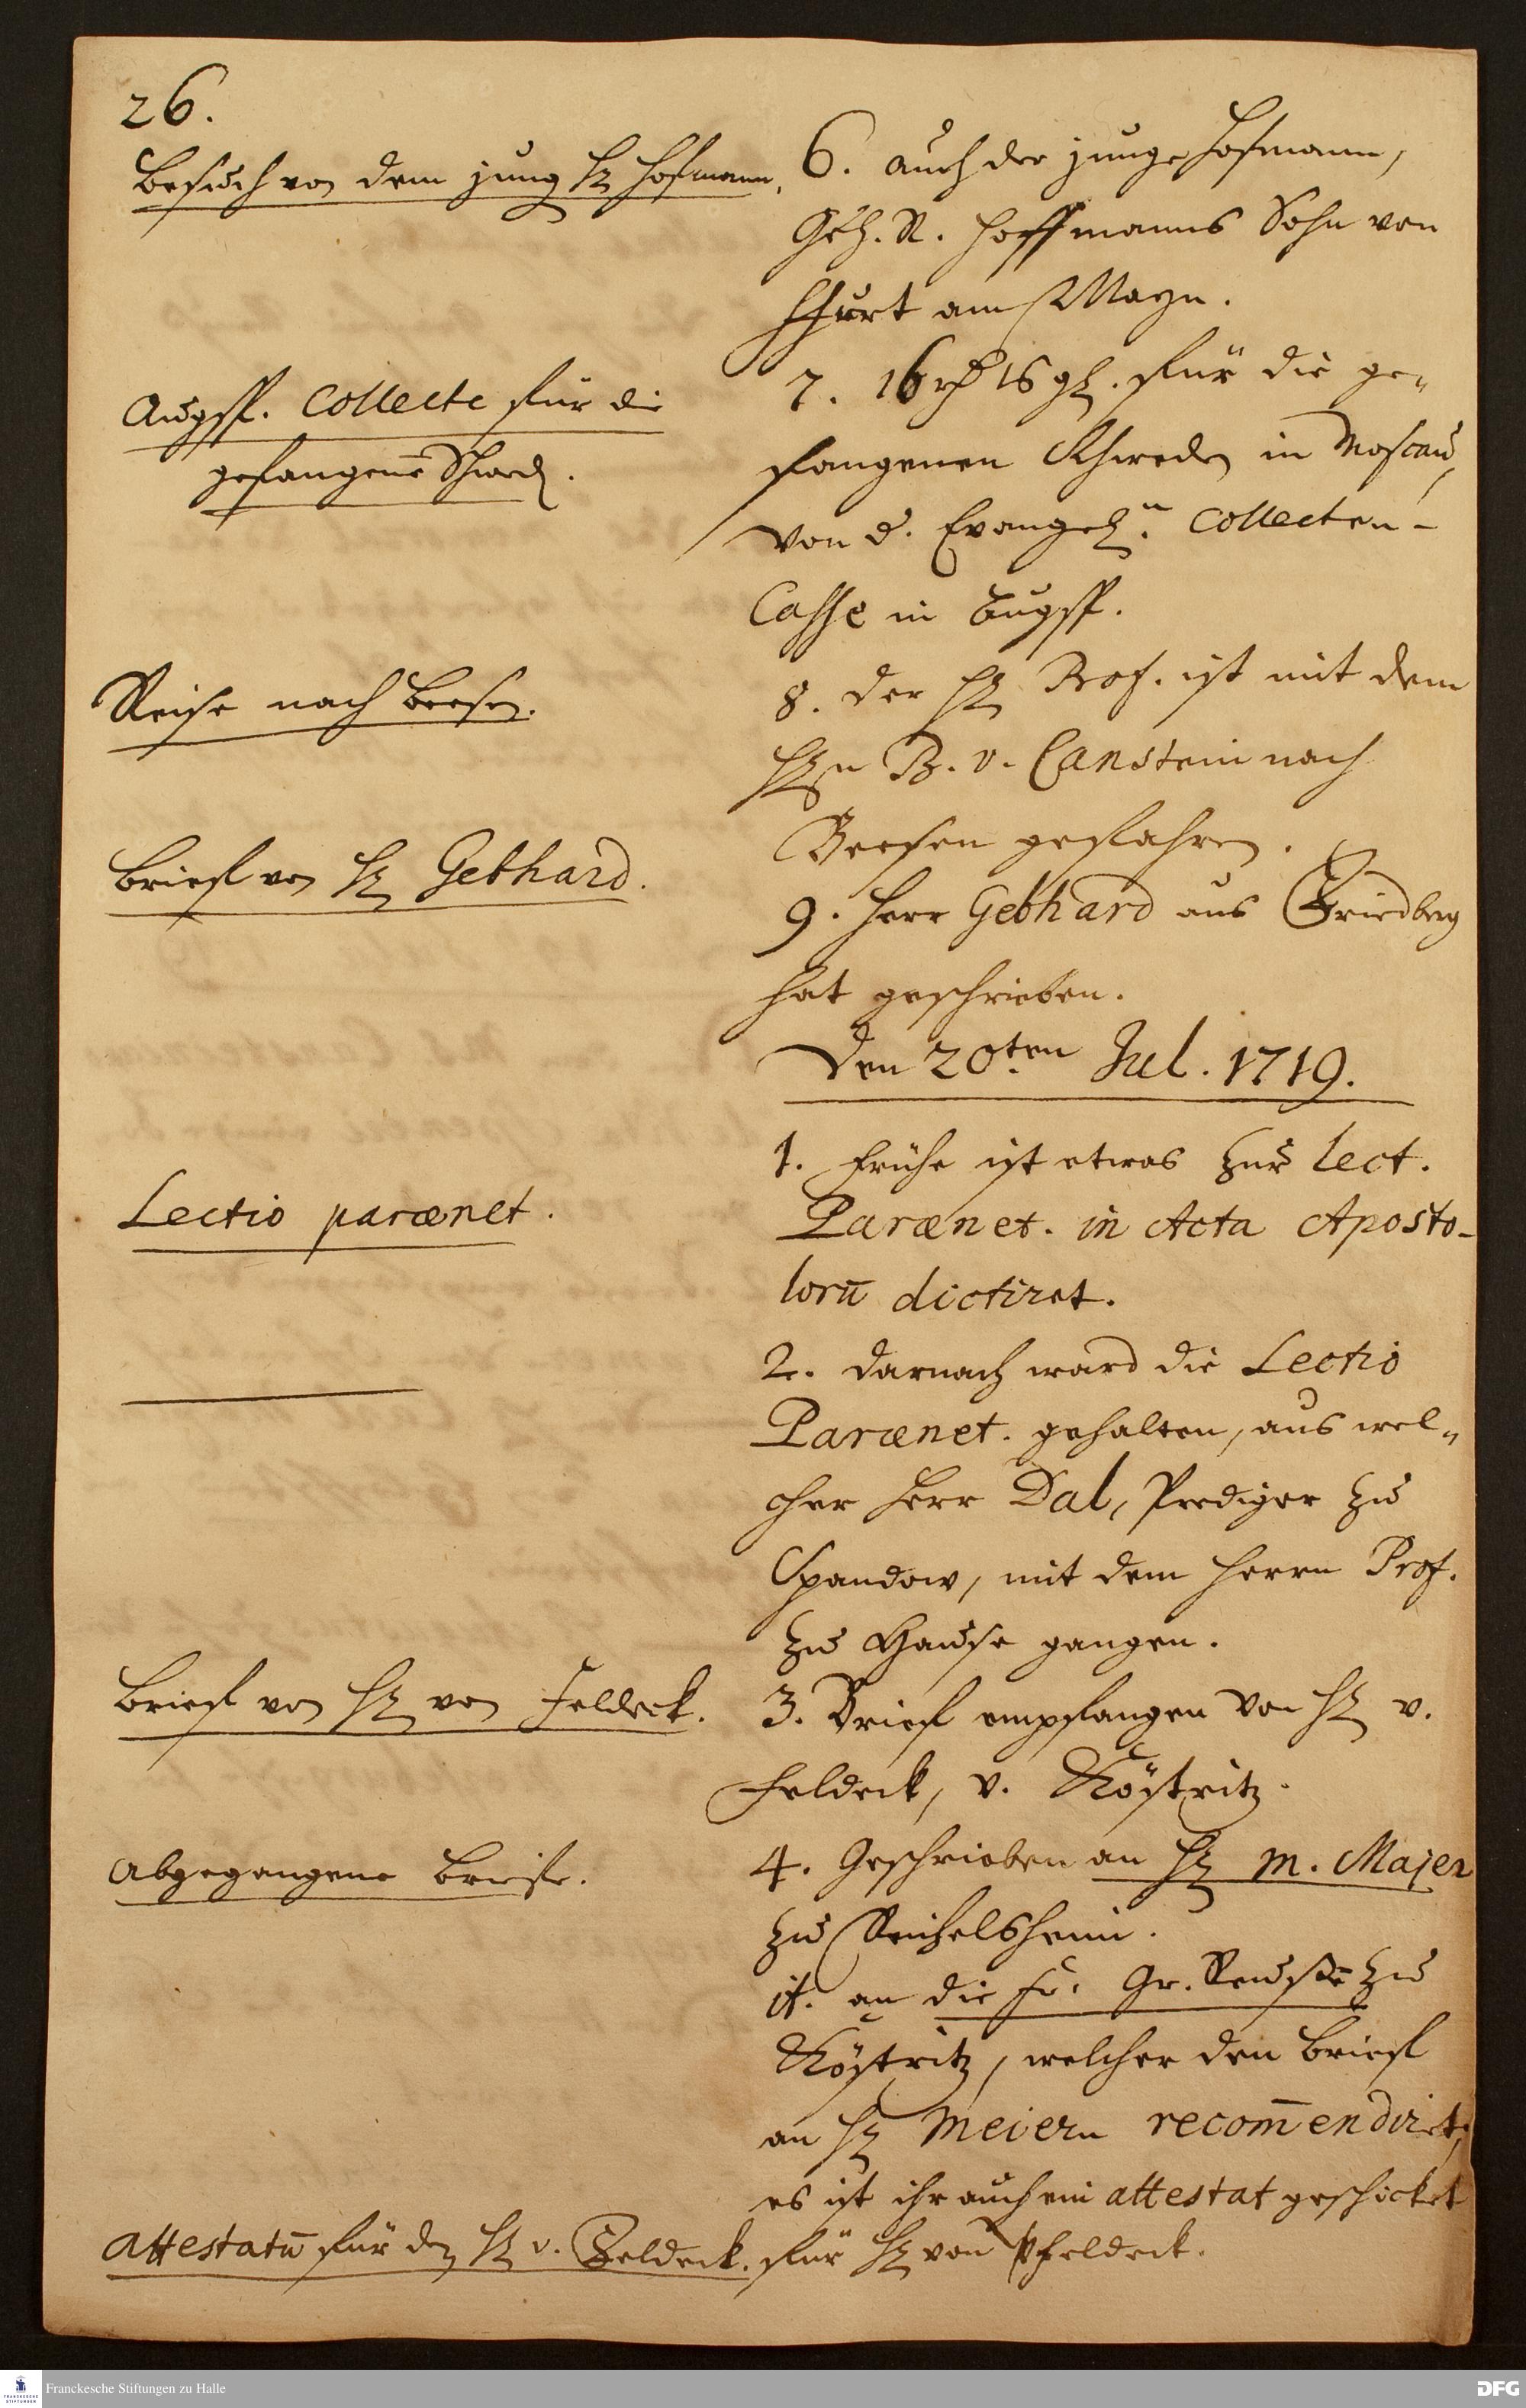 26.
Besuch von dem jung H. Hofmann.
6. auch der junge Hofmann,
Geh. R. Hoffmanns Sohn von
Ffurt am Mayn.
Augsp. Collecte für die
gefangene Schwed.
7. 16 rthl 16 gl. für die ge-
fangenen Schweden in Moscau,
von d. Evangel.n Collecten-
Casse in Augsp.
Reise nach Beesen.
8. der H. Prof. ist mit dem
H.n B. v. Canstein nach
Beesen gefahren.
Brief von H. Gebhard.
9. Herr Gebhard aus Friedberg
hat geschrieben.
Den 20ten Jul. 1719.
1. Frühe ist etwas zur lect.
Lectio parænet.
Parænet. in Acta Aposto-
lorū dictiret.
2. darnach ward die Lectio
Parænet. gehalten, aus wel-
cher Herr Dal, Prediger zu
Spandow, mit dem Herrn Prof.
zu Hause gangen.
Brief von H. von Feldeck.
3. Brief empfangen von H. v.
Feldeck, v. Köstritz.
Abgegangene Briefe.
4. Geschrieben an H. M. Majer
zu Reichelsheim.
it. an die Fr. Gr. Reussē zu
Köstritz, welcher den Brief
an H. Meiern recom̄endirt,
es ist ihr auch ein attestat geschicket
Attestatū für den H. v. Feldeck.
für H. von Feldeck.
Franckesche Stiftungen zu Halle
FRANCKESCHE
STIFTUNGEN
DFG